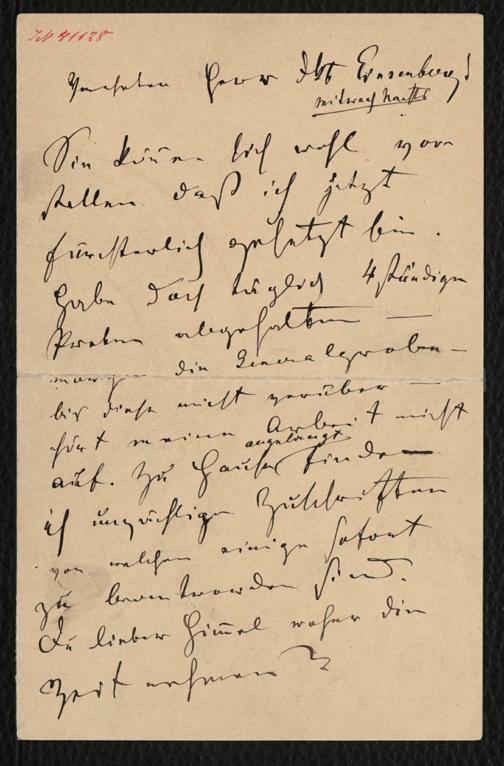 Verehrter Herr Dkt Eisenberg!
Mittwoch Nachts
Sie können sich wohl vor-
stellen daß ich jetzt
fürchterlich gehetzt bin.
Habe doch täglich 4stündige
Proben abgehalten —
morgen die Generalprobe —
bis diese nicht vorüber —
hört meine Arbeit nicht
auf. Zu Hause angelangt finde
ich unzählige Zuschriften
von welchen einige sofort
zu beantworten sind.
Du lieber Himmel woher die
Zeit nehmen?